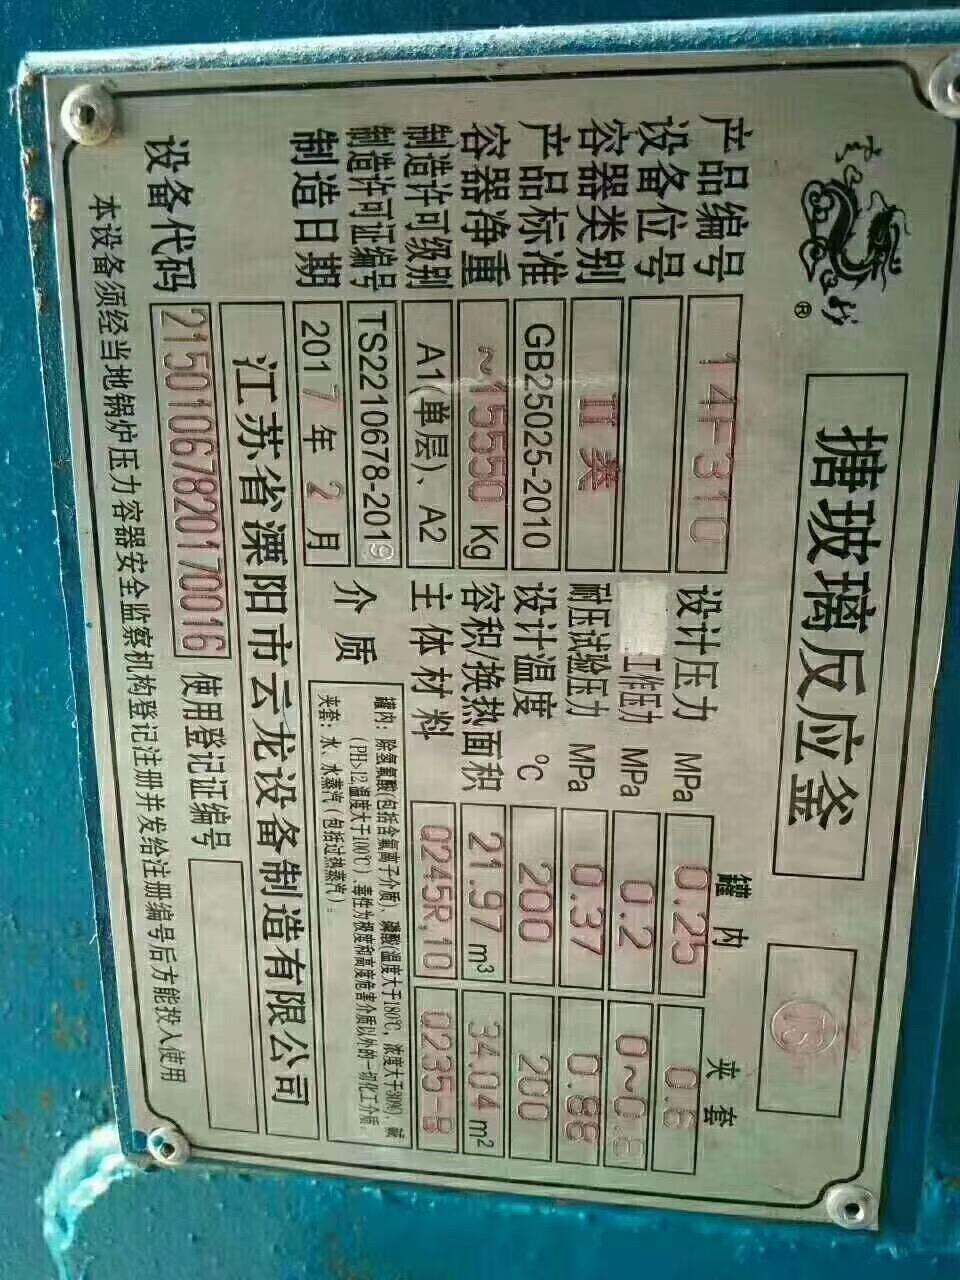 ®
搪玻璃反应釜
TS
罐内 夹套
产品编号 14F310 设计压力 MPa 0.25 0.6
设备位号 工作压力 MPa 0.2
容器类别 II类 耐压试验压力 MPa 0.37 0.88
产品标准 GB25025-2010 设计温度 ℃ 200 200
容器净重 ~15550 Kg 容积换热面积 21.97 m³ 34.04 m²
制造许可级别 A1(单层)、A2 主体材料 Q245R,10 Q235-B
制造许可证编号 TS2210678-2019 介质 罐内：除氢氟酸(包括含氟离子介质)、磷酸(温度大于180℃，浓度大于30%)、碱
(PH>12,温度大于100℃)毒性为极度和高度危害介质以外的一切化工介质。
制造日期 2017年2月 夹套：水、水蒸汽(包括过热蒸汽)。
江苏省溧阳市云龙设备制造有限公司
设备代码 21501067820170016 使用登记证编号
本设备须经当地锅炉压力容器安全监察机构登记注册并发给注册编号后方能投入使用